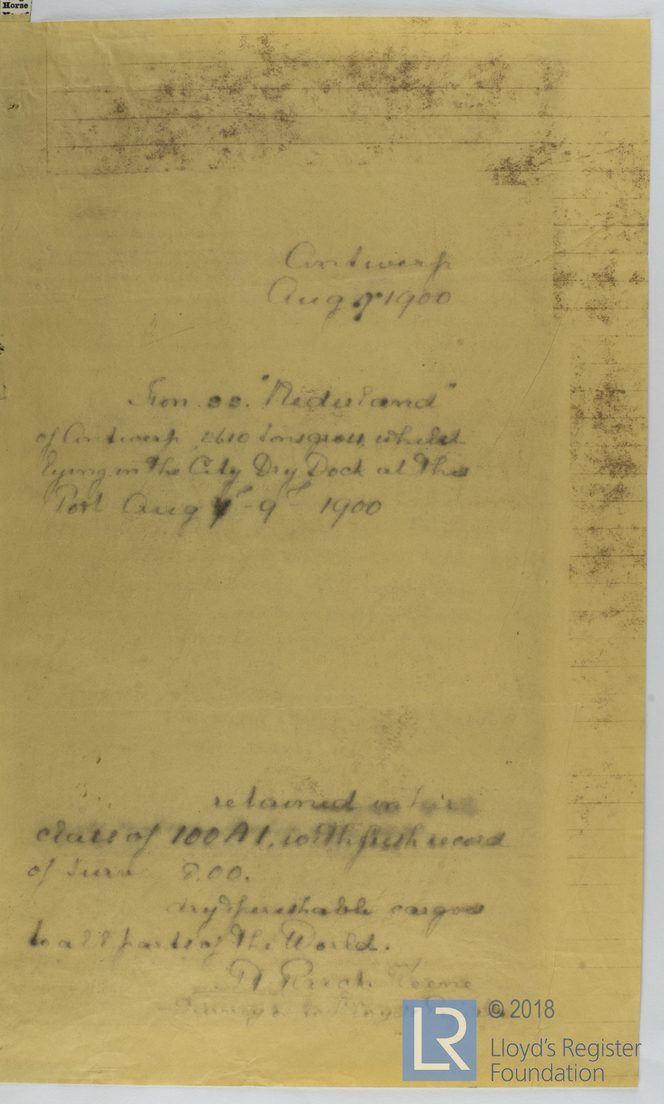 Horse
Antwerp
Aug 9 1900
Iron ss. "Nederland"
of Antwerp, tons gross, whilst
lying in the City Dry Dock at this
Port Aug - 9th 1900
retained in her
class of 100A1, with fresh record
of Surv 8.00.
dry & perishable cargoes
to all parts of the World.
© 2018
LR
Lloyd's Register
Foundation